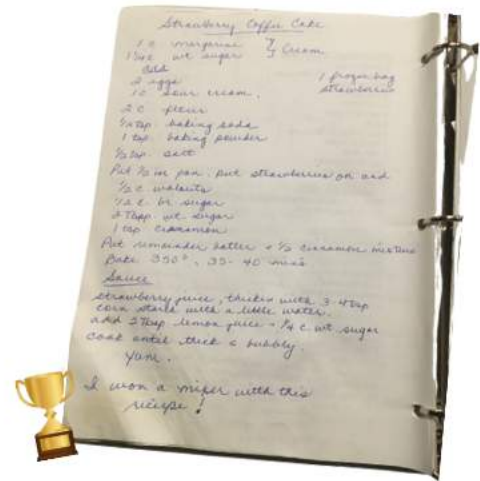 Strawberry Coffee Cake
1 c margarine } Cream
1 1/4 c wt sugar
Add
2 eggs
1 frozen bag
strawberries
1 c sour cream.
2 c flour
1/2 tsp baking soda
1 tsp baking powder
1/2 tsp salt
Put 1/2 in pan. put strawberries on and
1/2 c walnuts
1/2 c br sugar
2 Tbsp wt sugar
1 tsp cinnamon
Put remainder batter + 1/2 cinnamon mixture
Bake 350°, 35-40 mins
Sauce
strawberry juice, thicken with 3-4 tsp
corn starch with a little water.
add 3 Tbsp lemon juice + 1/4 c wt sugar
cook until thick & bubbly.
Yum.
I won a mixer with this
recipe!